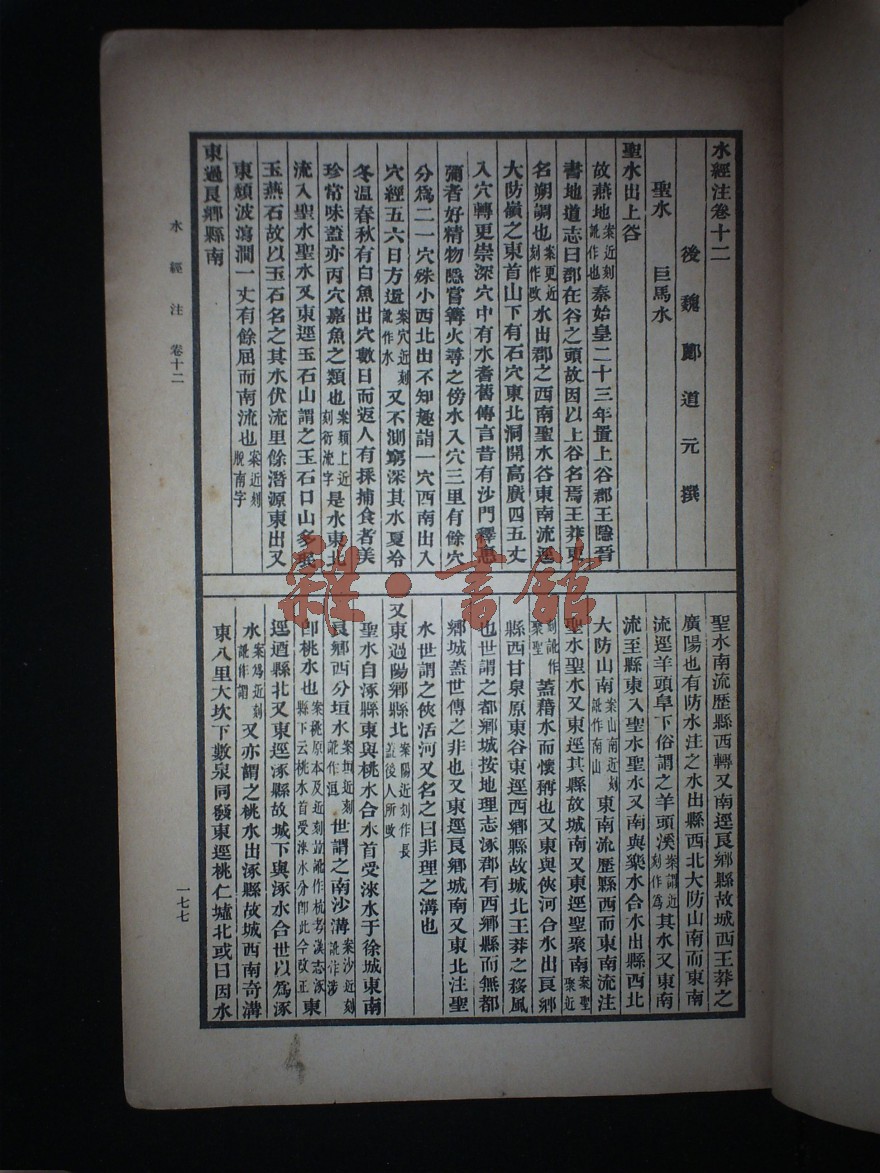 水經注卷十二
後魏酈道元撰
聖水　巨馬水
聖水出上谷
故燕地案近刻訛作也秦始皇二十三年置上谷郡王隱晉
書地道志曰郡在谷之頭故因以上谷名焉王莽更
名朔調也案更近刻作改水出郡之西南聖水谷東南流逕
大防嶺之東首山下有石穴東北洞開高廣四五丈
入穴轉更崇深穴中有水耆舊傳言昔有沙門釋惠
彌者好精物隱嘗篝火尋之傍水入穴三里有餘穴
分爲二一穴殊小西北出不知趣詣一穴西南出入
穴經五六日方還案穴近刻訛作水又不測窮深其水夏冷
冬溫春秋有白魚出穴數日而返人有採捕食者美
珍常味蓋亦丙穴嘉魚之類也案類上近刻衍流字是水東北
流入聖水聖水又東逕玉石山謂之玉石口山多珉
玉燕石故以玉石名之其水伏流里餘潛源東出又
東頹波瀉澗一丈有餘屈而南流也案近刻脫南字
東過良鄉縣南
聖水南流歷縣西轉又南逕良鄉縣故城西王莽之
廣陽也有防水注之水出縣西北大防山南而東南
流逕羊頭阜下俗謂之羊頭溪案謂近刻作爲其水又東南
流至縣東入聖水聖水又南與樂水合水出縣西北
大防山南案山南近刻訛作南山東南流歷縣西而東南流注
聖水聖水又東逕其縣故城南又東逕聖聚南案聖聚近
刻訛作聚聖蓋藉水而懷稱也又東與俠河合水出良鄉
縣西甘泉原東谷東逕西鄉縣故城北王莽之移風
也世謂之都鄉城按地理志涿郡有西鄉縣而無都
鄉城蓋世傳之非也又東逕良鄉城南又東北注聖
水世謂之俠活河又名之曰非理之溝也
又東過陽鄉縣北案陽近刻作長蓋後人所改
聖水自涿縣東與桃水合水首受淶水于徐城東南
良鄉西分垣水案垣近刻訛作洹世謂之南沙溝案沙近刻訛作涉
卽桃水也案桃原本及近刻並訛作杭考漢志涿縣下云桃水首受淶水分卽此今改正東
逕逎縣北又東逕涿縣故城下與涿水合世以爲涿
水案爲近刻訛作謂又亦謂之桃水出涿縣故城西南奇溝
東八里大坎下數泉同發東逕桃仁墟北或曰因水
水經注　卷十二
一七七
雜·書館